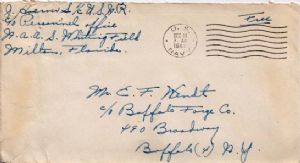 Free
U. S.
NAVY
c/o Personnel Office
N. A. A. S. Whiting Field
Milton, Florida.
Mr. E. F. Wendt
c/o Buffalo Forge Co.
490 Broadway
Buffalo (4) N. Y.